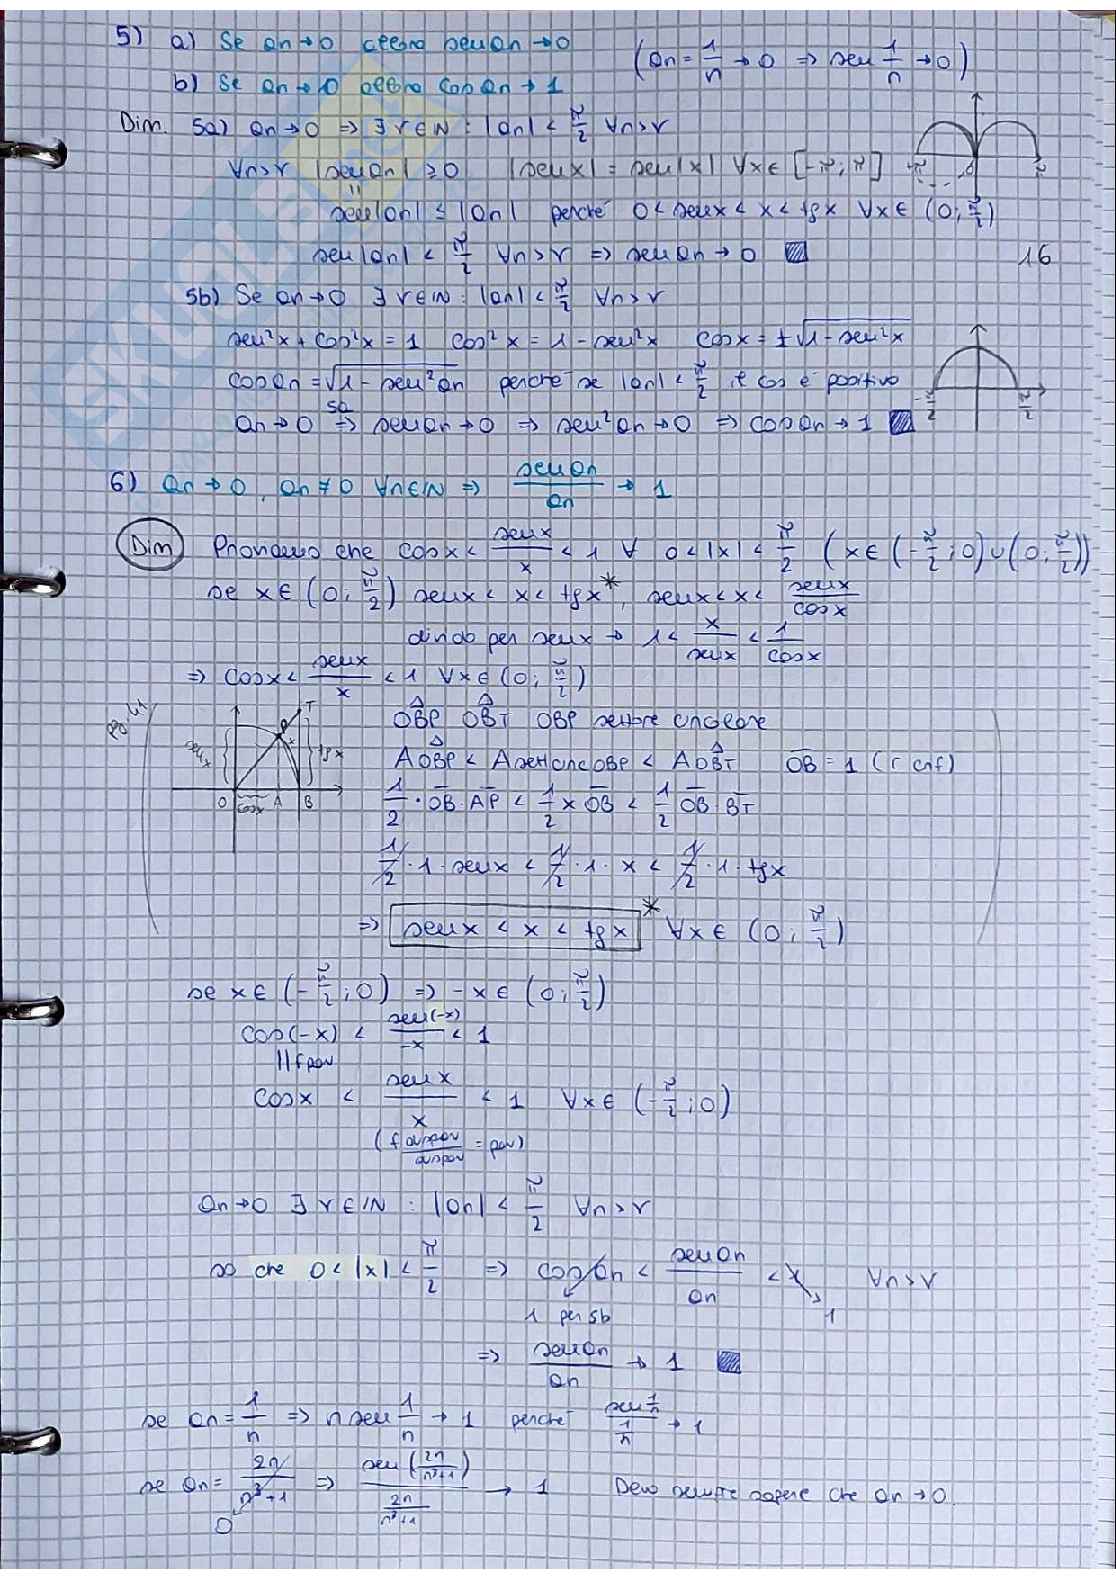 5) a) Se an→0 allora sen an→0 (an = 1/n → 0 ⇒ sen 1/n → 0)
b) Se an→0 allora cos an→1
Dim. 5a) an→0 ⇒ ∃ r∈N : |an| < π/2 ∀n>r
∀n>r |sen an| ≥ 0 |sen x| = sen|x| ∀x∈ [-π; π]
sen|an| ≤ |an| perché 0 < sen x < x < tg x ∀x∈ (0; π/2)
sen|an| < π/2 ∀n>r ⇒ sen an → 0
16
5b) Se an→0 ∃ r∈N : |an| < π/2 ∀n>r
sen²x + cos²x = 1 cos²x = 1 - sen²x cos x = ±√1 - sen²x
cos an = √1 - sen²an perché se |an| < π/2 il cos è positivo
an→0 5a ⇒ sen an→0 ⇒ sen²an→0 ⇒ cos an→1
-π/2 π/2
6) an→0, an≠0 ∀n∈N ⇒ sen an / an → 1
Dim Proviamo che cos x < sen x / x < 1 ∀ 0 < |x| < π/2 (x∈ (-π/2; 0) ∪ (0, π/2))
se x∈ (0, π/2) sen x < x < tg x*, sen x < x < sen x / cos x
divido per sen x → 1 < x / sen x < 1 / cos x
⇒ cos x < sen x / x < 1 ∀x∈ (0; π/2)
OBP OBT OBP settore circolare
A OBP < A sett circ OBP < A OBT OB = 1 (r circ)
sen x P T x tg x O cos x A B
1/2 · OB AP < 1/2 x OB < 1/2 OB BT
1/2 · 1 · sen x < 1/2 · 1 · x < 1/2 · 1 · tg x
⇒ sen x < x < tg x * ∀x∈ (0, π/2)
se x∈ (-π/2; 0) ⇒ -x∈ (0; π/2)
cos(-x) < sen(-x) / -x < 1
|| f pari
cos x < sen x / x < 1 ∀x∈ (-π/2; 0)
(f dispari / dispari = pari)
an→0 ∃ r∈N : |an| < π/2 ∀n>r
so che 0 < |x| < π/2 ⇒ cos an < sen an / an < 1 ∀n>r
1 per 5b 1
⇒ sen an / an → 1
se an = 1/n ⇒ n sen 1/n → 1 perché sen 1/n / 1/n → 1
se an = 2n / n³+1 ⇒ sen (2n / n³+1) / 2n / n³+1 → 1 Devo sempre sapere che an→0.
0